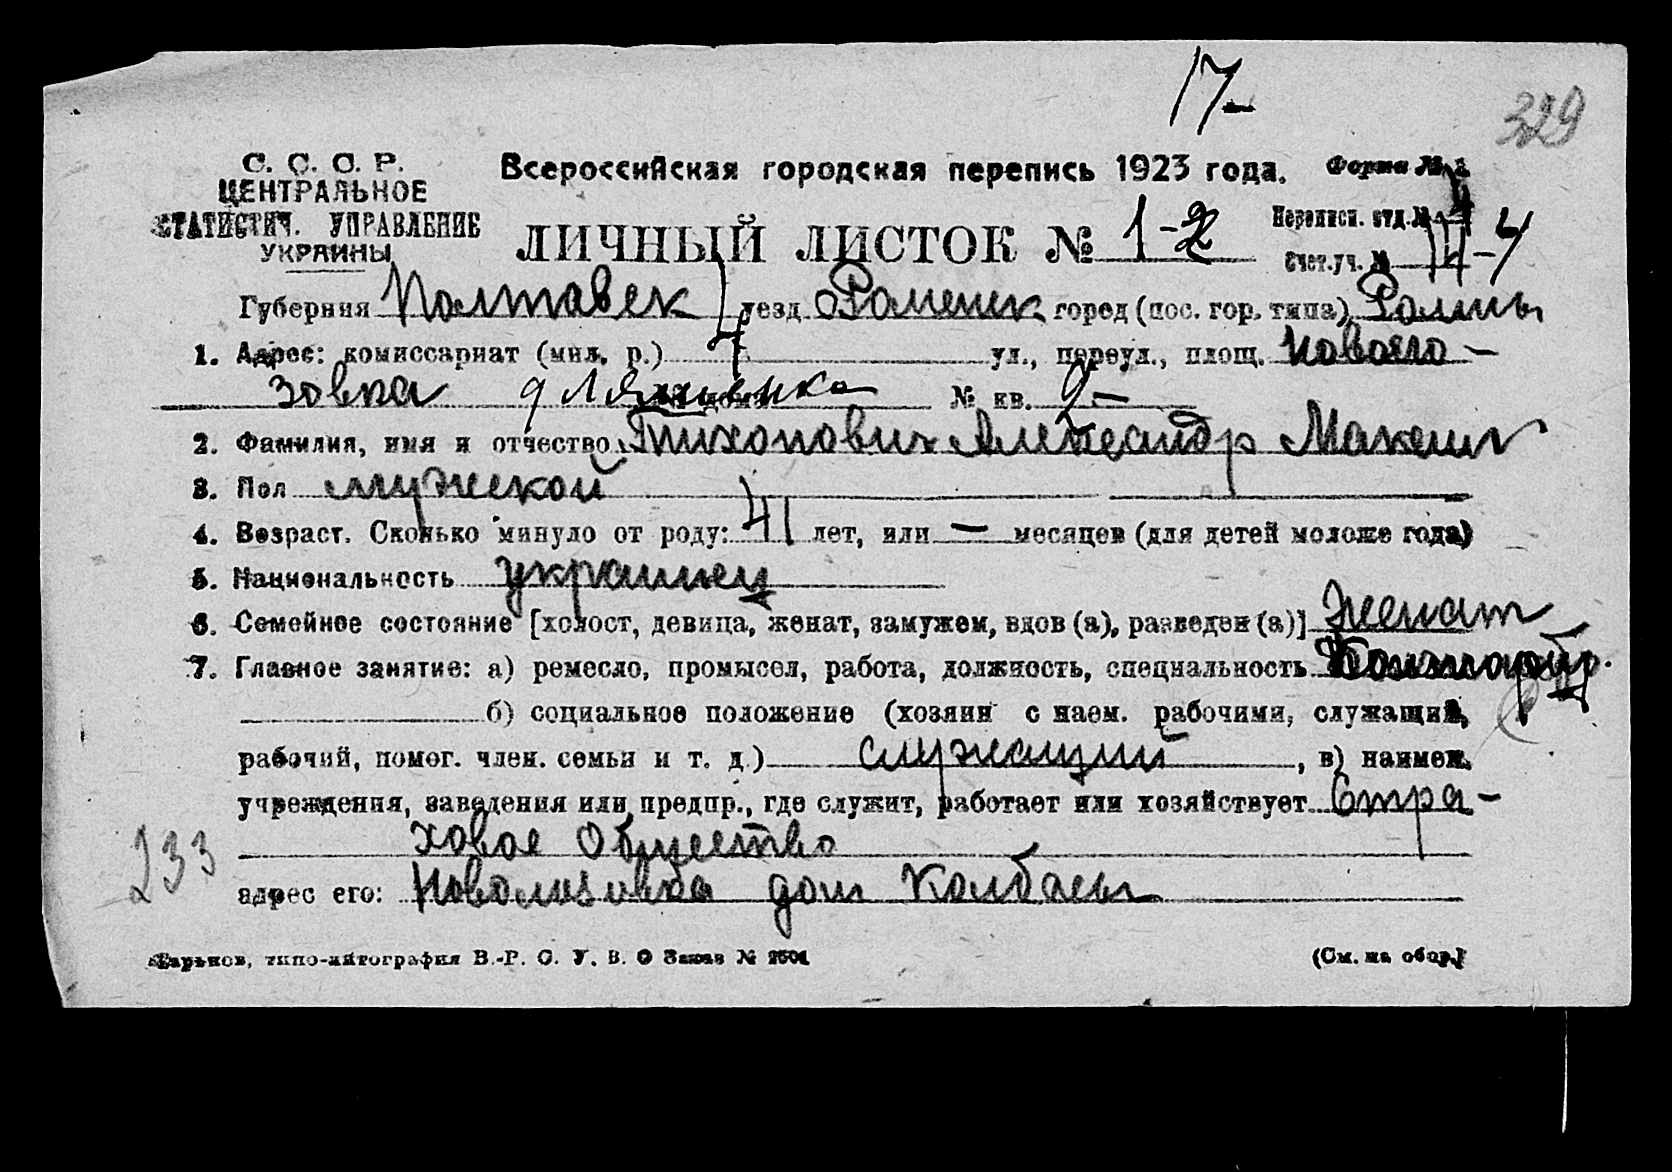 17-
329
С. С. С. Р.
ЦЕНТРАЛЬНОЕ
СТАТИСТИЧ. УПРАВЛЕНИЕ
УКРАИНЫ
Всероссийская городская перепись 1923 года.
Форма №
ЛИЧНЫЙ ЛИСТОК № 1-2
Переписн. отд. №
Счет. уч. №
Губерния Полтавск уезд Роменск город (пос. гор. типа) Ромны
1. Адрес: комиссариат (мил. р.) 4 ул., переул., площ.
зовка д Ляшенко № дома № кв.
2. Фамилия, имя и отчество Тихонович Александр Максим
3. Пол мужской
4. Возраст. Сколько минуло от роду: 41 лет, или — месяцев (для детей моложе года)
5. Национальность украинец
6. Семейное состояние [холост, девица, женат, замужем, вдов (а), разведен (а)] женат
7. Главное занятие: а) ремесло, промысел, работа, должность, специальность
б) социальное положение (хозяин с наем. рабочими, служащий,
рабочий, помог. член. семьи и т. д.) служащий, в) наимен.
учреждения, заведения или предпр., где служит, работает или хозяйствует Стра-
ховое Общество
233
адрес его: дом Колбасы
Харьков, типо-литография В.-Р. С. У. В. О Заказ №
(См. на обор.)